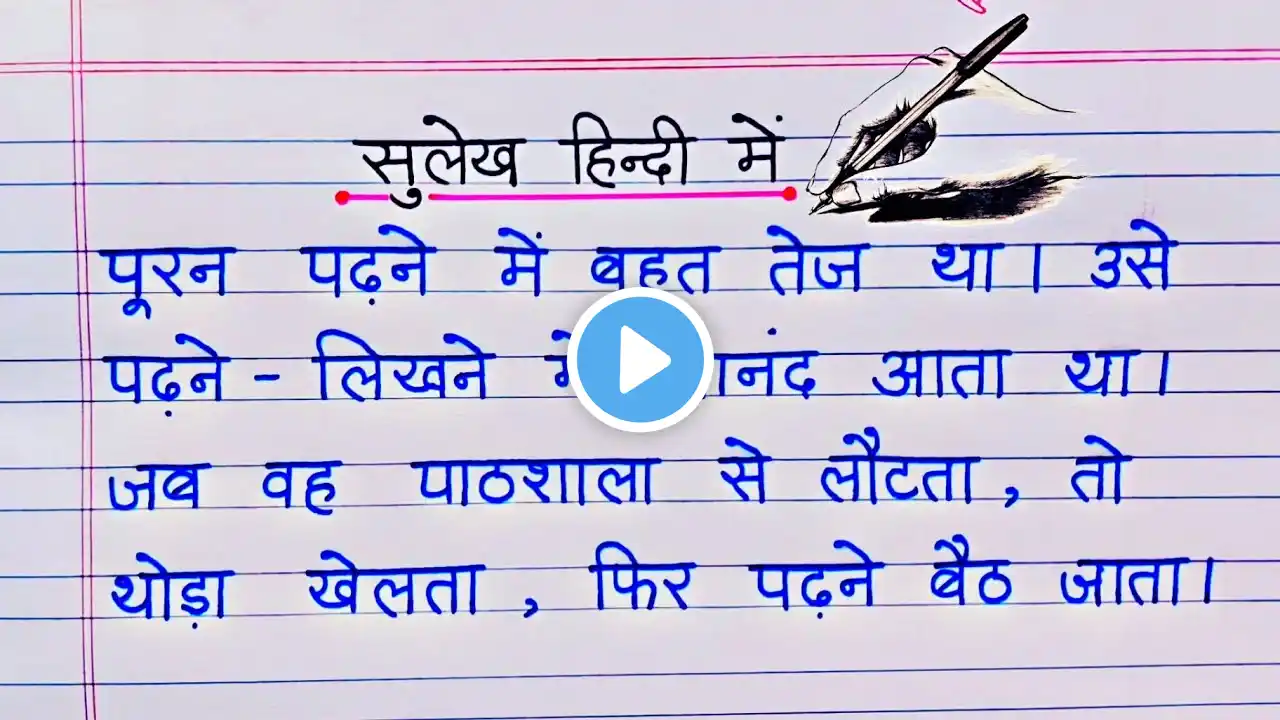 सुलेख हिन्दी में
पूरन पढ़ने में बहुत तेज था। उसे
पढ़ने - लिखने आता था।
जब वह पाठशाला से लौटता, तो
थोड़ा खेलता, फिर पढ़ने बैठ जाता।